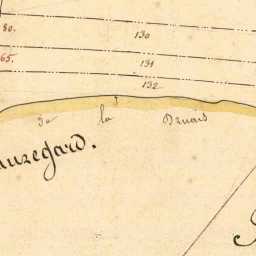 80.
130
65.
131
132
de la Druais
auregard.